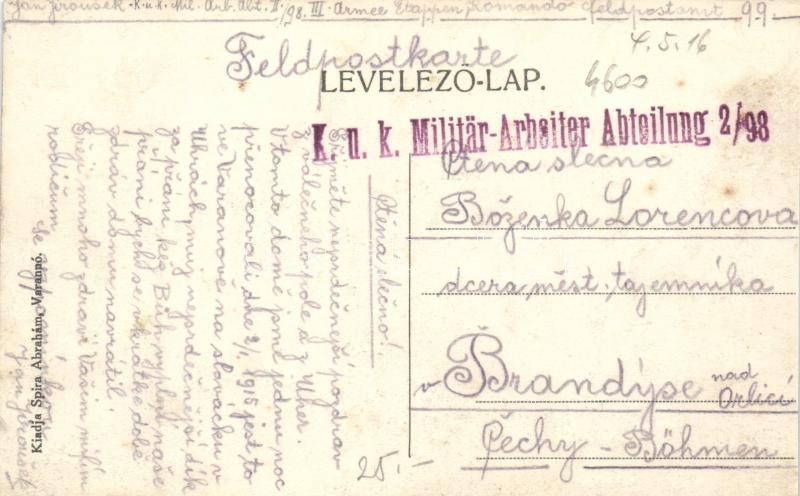 Jan Jiroušek - K.u.K. Mil. Arb. Abt. II/98. III. Armee Etappen, Komando Feldpostamt 99
4.5.16
Feldpostkarte
4600
LEVELEZŐ-LAP.
K. u. k. Militär-Arbeiter Abteilung 2/98
Ctěná slečna
Boženka Lorencova
dcera měst. tajemníka
v Brandýse nad
Orlicí
Čechy - Böhmen
Ctěná slečno!
Přijměte nejsrdečnejší pozdrav
z válečného pole a z Uher.
V tomto domě jsme jednu noc
přenocovali dne 2/1. 1915 jest to
ve Varanove na slovácku v
Uhrách, můj nejsrdečnejší dík
za přání, kéž Bůh vyplní naše
přání bych se v krátké době
zdráv domů navrátil.
Přeji mnoho zdraví Vašim milím
rodičum
Jan Jiroušek
Kiadja Spira Abrahám, Varannó.
25.-